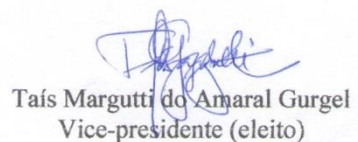 Taís Margutti do Amaral Gurgel
Vice-presidente (eleito)